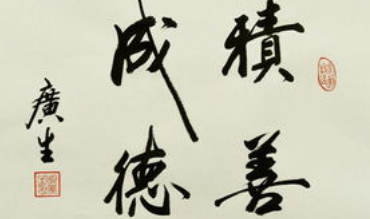 積善
成德
廣生